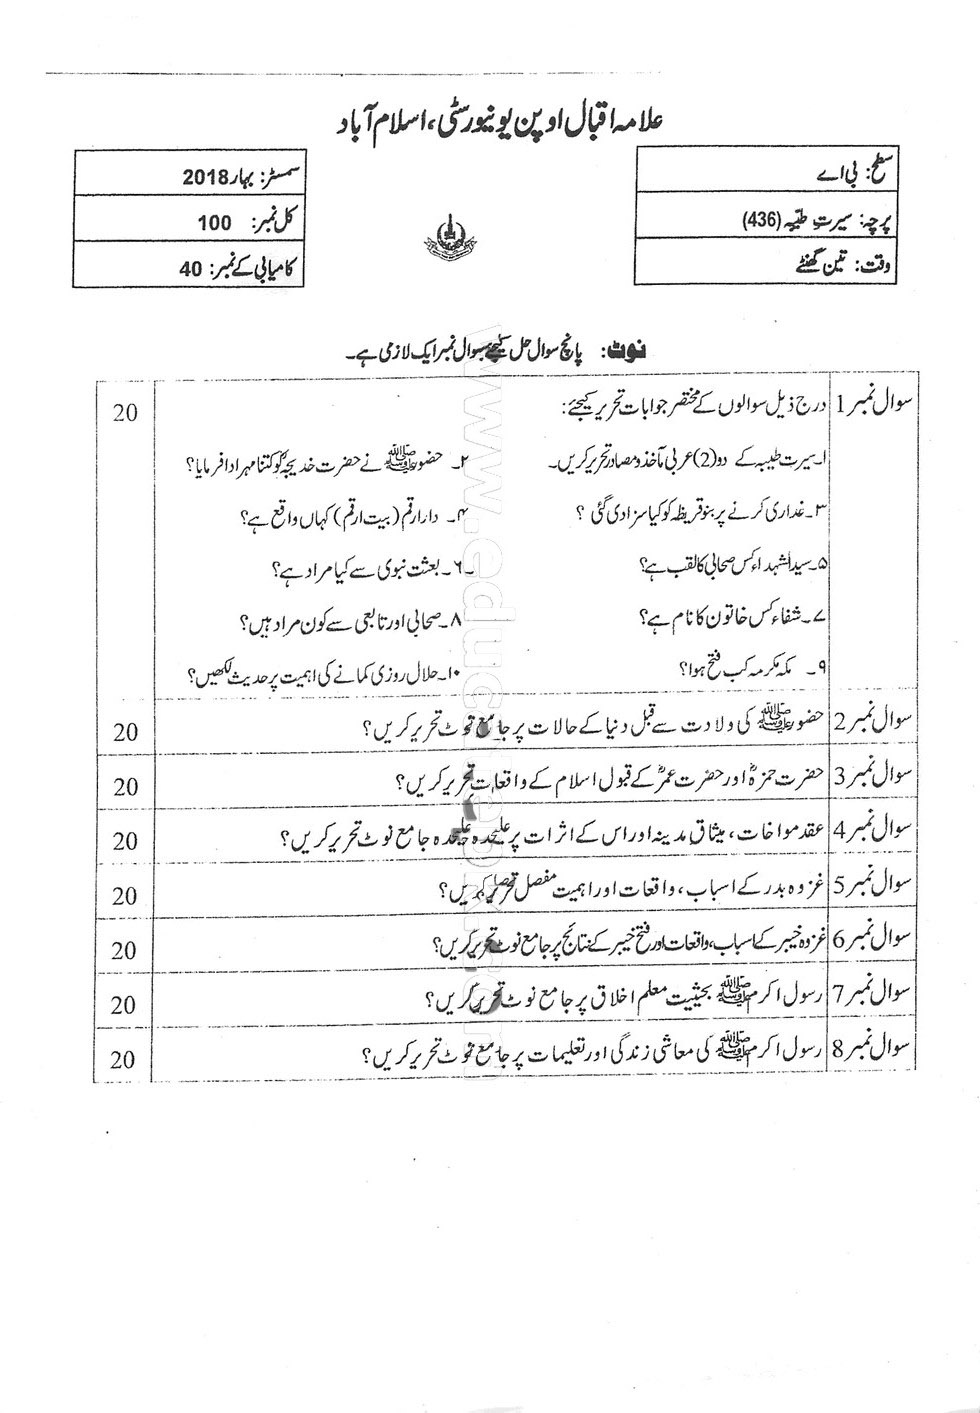 علامہ اقبال اوپن یونیورسٹی، اسلام آباد
سطح: بی اے
پرچہ: سیرت طیبہ (436)
وقت: تین گھنٹے
سمسٹر: بہار 2018
کل نمبر: 100
کامیابی کے نمبر: 40
نوٹ: پانچ سوال حل کیجئے سوال نمبر ایک لازمی ہے۔
سوال نمبر 1 درج ذیل سوالوں کے مختصر جوابات تحریر کیجئے: 20
۱۔ سیرت طیبہ کے دو (2) عربی مآخذ و مصادر تحریر کریں۔ ۲۔ حضور ﷺ نے حضرت خدیجہؓ کو کتنا مہر ادا فرمایا؟
۳۔ غداری کرنے پر بنو قریظہ کو کیا سزا دی گئی ؟ ۴۔ دار ارقم (بیت ارقم) کہاں واقع ہے؟
۵۔ سید الشہداء کس صحابی کا لقب ہے؟ ۶۔ بعثت نبوی سے کیا مراد ہے؟
۷۔ شفاء کس خاتون کا نام ہے؟ ۸۔ صحابی اور تابعی سے کون مراد ہیں؟
۹۔ مکہ مکرمہ کب فتح ہوا؟ ۱۰۔ حلال روزی کمانے کی اہمیت پر حدیث لکھیں؟
سوال نمبر 2 حضور ﷺ کی ولادت سے قبل دنیا کے حالات پر جامع نوٹ تحریر کریں؟ 20
سوال نمبر 3 حضرت حمزہؓ اور حضرت عمرؓ کے قبول اسلام کے واقعات تحریر کریں؟ 20
سوال نمبر 4 عقد مواخات، میثاق مدینہ اور اس کے اثرات پر علیحدہ علیحدہ جامع نوٹ تحریر کریں؟ 20
سوال نمبر 5 غزوہ بدر کے اسباب، واقعات اور اہمیت مفصل تحریر کریں؟ 20
سوال نمبر 6 غزوہ خیبر کے اسباب، واقعات اور فتح خیبر کے نتائج پر جامع نوٹ تحریر کریں؟ 20
سوال نمبر 7 رسول اکرم ﷺ بحیثیت معلم اخلاق پر جامع نوٹ تحریر کریں؟ 20
سوال نمبر 8 رسول اکرم ﷺ کی معاشی زندگی اور تعلیمات پر جامع نوٹ تحریر کریں؟ 20